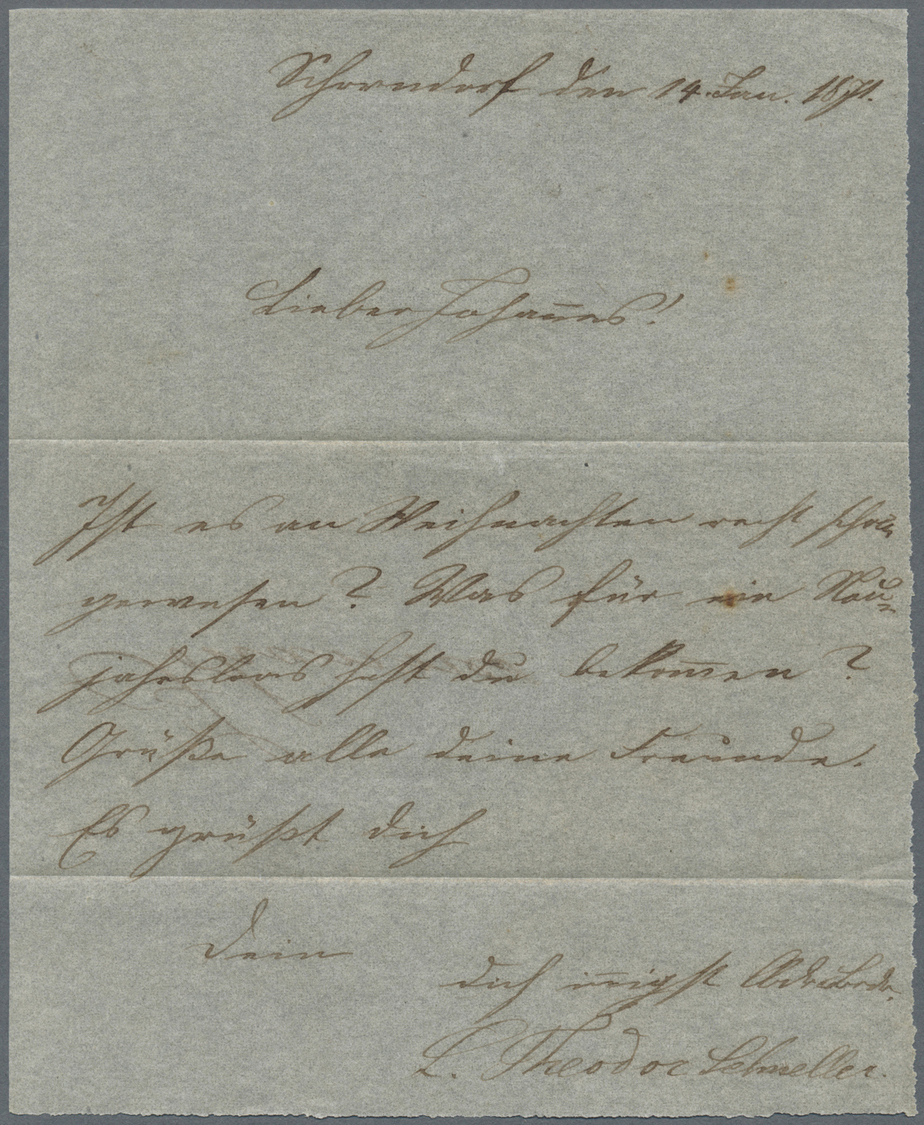 Schorndorf den 14. Jan. 1871.
Lieber Johan̄es!
Ist es an Weihnachten recht schön
gewesen? Was für ein Neu-
jahrsloos hast du bekom̄en?
Grüße alle deine Freunde.
Es grüßt dich
Dein
dich in̄igst
L. Theodor Schneller.